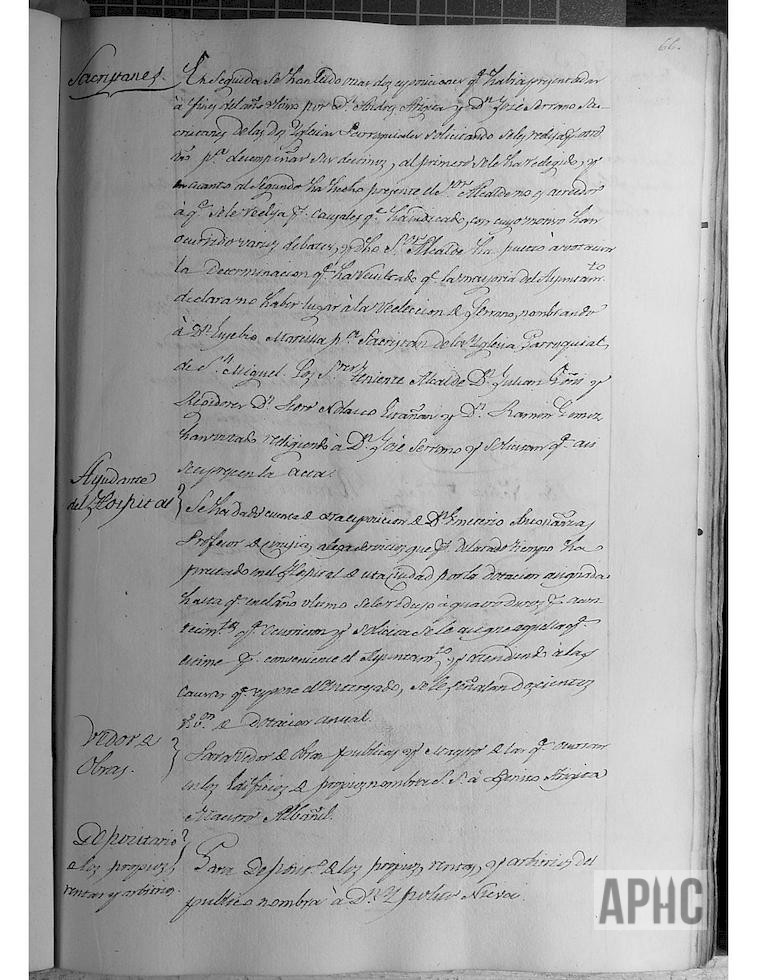 66.
Sacristanes.
En seguida se han leido mas dos exposiciones qe. habian presentadas
à fines del año ultimo por Dn. Andres Argota y Dn. José Serrano Sa-
cristanes de las dos Yglesias Parroquiales solicitando se les reelija
pa. desempeñar sus destinos, al primero se le ha reelegido, y
en cuanto al segundo ha hecho presente el Sor. Alcalde no es acreedor
à qe. se le reelija pr. causales qe. ha indicado, con cuyo motivo han
ocurrido varios debates, y dho Sor. Alcalde ha puesto à votacion
la Determinacion qe. ha resultado qe. la mayoria del Ayuntamto.
declara no haber lugar à la reeleccion de Serrano, nombrando
à Dn. Eusebio Marsilla pa. Sacristan de la Yglesia Parroquial
de Sn. Miguel. Los Sres. teniente Alcalde Dn. Julian Goñi y
Regidores Dn. Pedro Nolasco y Dn. Ramon Gomez
han votado reeligiendo à Dn. José Serrano y solicitan qe. asi
se esprese en la acta.
Ayudante
del Hospital
Se ha dado cuenta de otra exposicion de Dn. Emeterio
Profesor de cirujia, alega servicios que pr. dilatado tiempo ha
prestado en el Hospital de esta Ciudad por la dotacion asignada
hasta qe. en el año ultimo se le redujo à cuatro duros pr. acon-
tecimtos. qe. ocurrieron y solicita se le asigne aquella qe.
estime pr. conveniente el Ayuntamto., y atendiendo à las
causas qe. espone el Interesado, se le señalan doscientos
rs. von. de dotacion anual.
Vedor de
Obras.
Para Vedor de Obras publicas y Maestro de las qe. ocurran
en los Edificios de propios nombra S. Sa. à Benito Argota
Maestro Albañil.
Depositario
de los propios
rentas y arbitrios.
Para Deposito. de los propios, rentas, y arbitrios del
publico nombra à Dn. Ypolito Nieva.
APHC